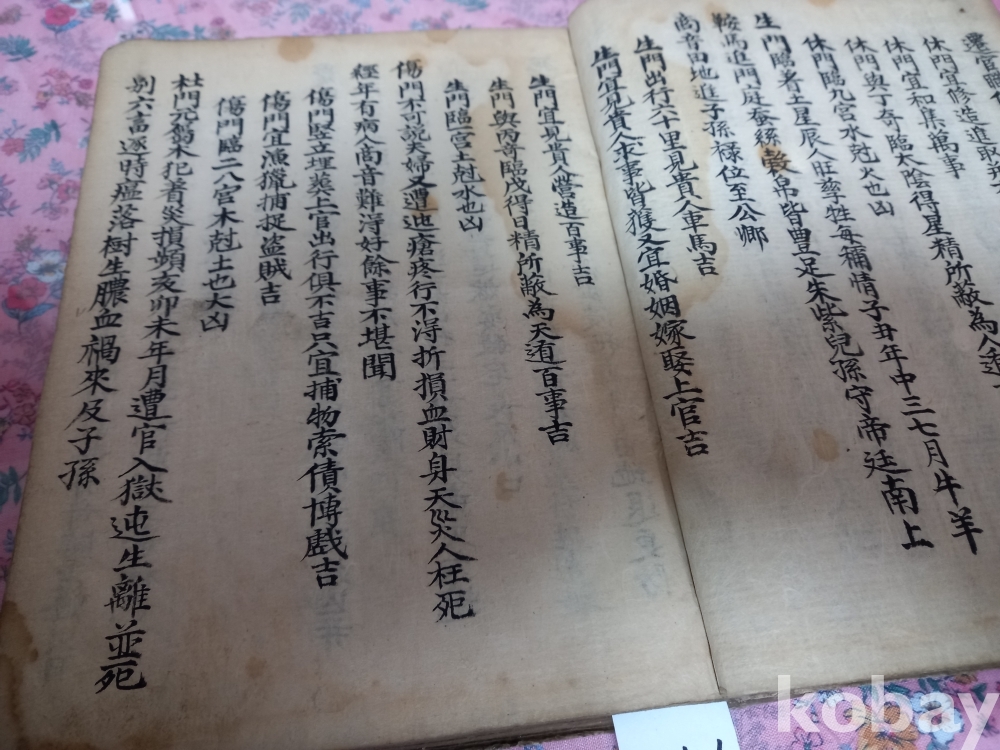 休門宜修造進取
休門宜和集萬事
休門與丁奇臨太陰得星精所蔽為人遁
休門臨九宮水尅火也凶
生門臨著土星辰人旺孳牲每稱情子丑年中三七月牛羊
鞍馬進門庭蚕絲穀帛皆豊足朱紫兒孫守帝廷南上
啇音田地進子孫禄位至公卿
生門出行六十里見貴人車馬吉
生門宜見貴人求事皆獲又宜婚姻嫁娶上官吉
生門宜見貴人營造百事吉
生門與丙奇臨戊得日精所蔽為天遁百事吉
生門臨宮土尅水也凶
傷門不可説夫婦又遭迍瘡疼行不淂折損血財身天災人枉死
經年有病人啇音難淂好餘事不堪聞
傷門竪立埋葬上官出行俱不吉只宜捕物索債博戲吉
傷門宜漁獵捕捉盜賊吉
傷門臨二八宮木尅土也大凶
杜門元屬木犯者災損頻亥卯未年月遭官入獄迍生離並死
别六畜逐時瘟落樹生膿血禍來及子孫
kobay